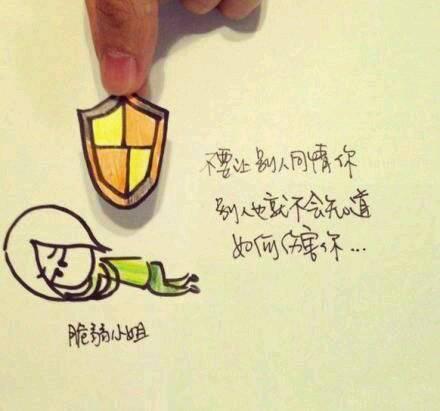 不要让别人同情你
别人也就不会知道
如何伤害你...
脆弱小姐